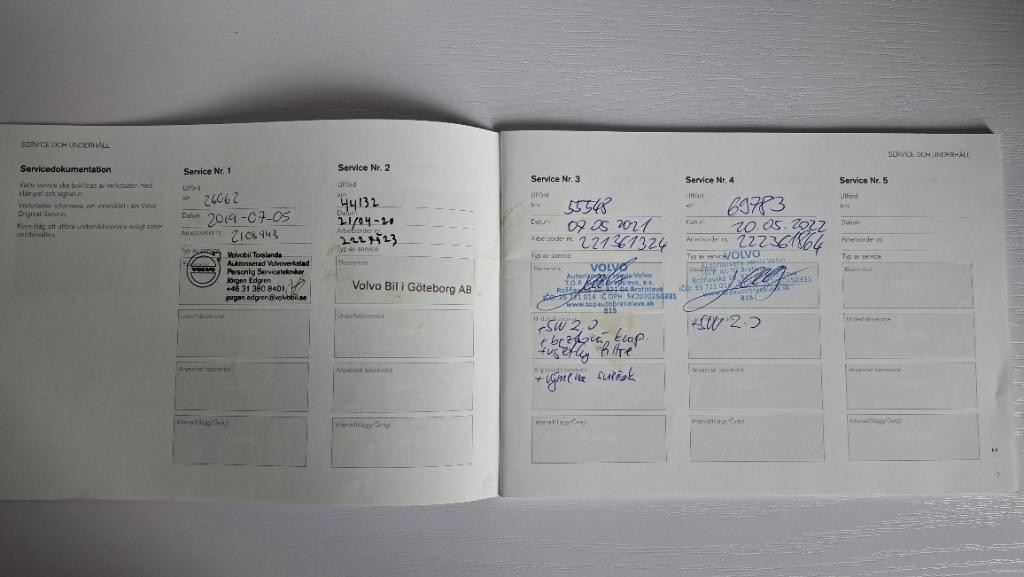 SERVICE OCH UNDERHÅLL
Servicedokumentation
Varje service ska bokföras av verkstaden med
stämpel och signatur.
Verkstaden informerar om innehållet i din Volvo
Original Service.
Kom ihåg att utföra underhållsservice enligt serv-
iceintervallen.
Service Nr. 1
Utförd
km 26062
Datum 2019-07-05
Arbetsorder nr. 2108943
Typ av service
VOLVO
Volvobil Torslanda
Auktoriserad Volvoverkstad
Personlig Servicetekniker
Jörgen Edgren
+46 31 380 8401
jorgen.edgren@volvobil.se
Underhållsservice
Anpassad basservice
Intervalltillägg/Övrigt
Service Nr. 2
Utförd
km 44132
Datum
21/04-20
Arbetsorder nr.
2227523
Typ av service
Basservice
Volvo Bil i Göteborg AB
Underhållsservice
Anpassad basservice
Intervalltillägg/Övrigt
SERVICE OCH UNDERHÅLL
Service Nr. 3
Utförd
km 55548
Datum 07.05.2021
Arbetsorder nr. 221361324
Typ av service
Basservice
VOLVO
Autorizovaný servis Volvo
T.O.P. AUTO Bratislava, a.s.
821 04 Bratislava
IČO: 35 721 014 IČ DPH: SK2020250331
www.topautobratislava.sk
815
Underhållsservice
+SW 2.0
+ brzdová kvap.
+všetky filtre
Anpassad basservice
+výmena sviečok
Intervalltillägg/Övrigt
Service Nr. 4
Utförd
km 69783
Datum 20.05.2022
Arbetsorder nr. 222361864
Typ av service
VOLVO
Autorizovaný servis Volvo
T.O.P. AUTO Bratislava
Rožňavská
IČO: 35 721 014
www.topautobratislava.sk
815
Underhållsservice
+SW 2.0
Anpassad basservice
Intervalltillägg/Övrigt
Service Nr. 5
Utförd
km
Datum
Arbetsorder nr.
Typ av service
Basservice
Underhållsservice
Anpassad basservice
Intervalltillägg/Övrigt
7